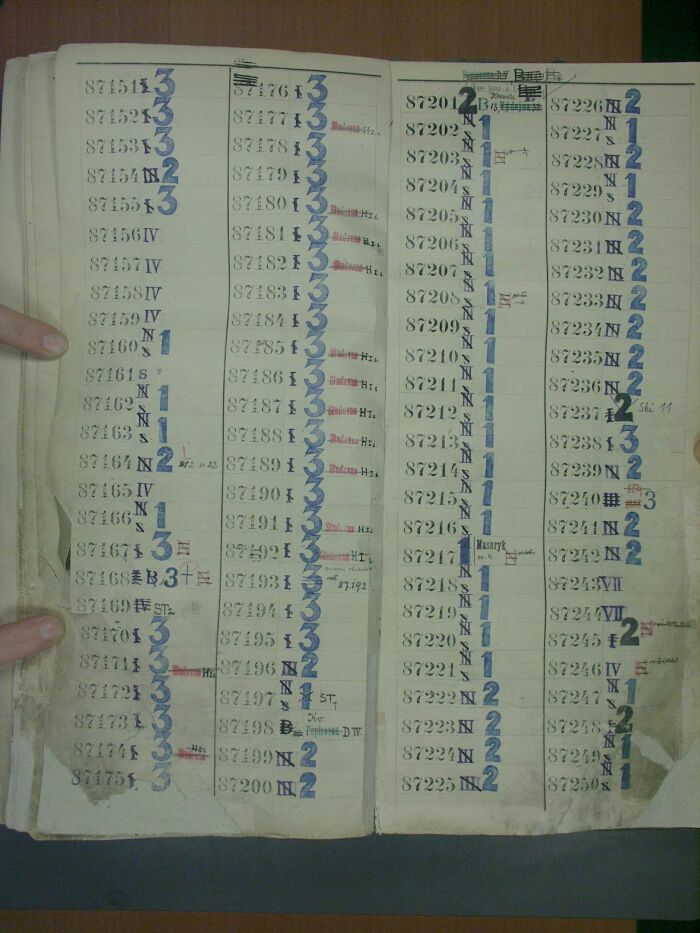 87151 I 3
87152 I 3
87153 I 3
87154 N 2
87155 I 3
87156 IV
87157 IV
87158 IV
87159 IV
87160 N S 1
87161 S
87162 N S 1
87163 N S 1
87164 N 2
87165 IV
87166 N S 1
87167 I 3 VI
87168 B 3 + VI
87169 IV ST2
87170 I 3
87171 I 3 Studovna H I1
87172 I 3
87173 I 3
87174 I 3 Studovna H I1
87175 I 3
87176 I 3
87177 I 3 Studovna H I1
87178 I 3
87179 I 3
87180 I 3 Studovna H I1
87181 I 3 Studovna H I1
87182 I 3 Studovna H I1
87183 I 3
87184 I 3
87185 I 3 Studovna H I1
87186 I 3 Studovna H I1
87187 I 3 Studovna H I1
87188 I 3 Studovna H I1
87189 I 3 Studovna H I1
87190 I 3
87191 I 3 Studovna H I1
87192 I 3 Studovna H I1
87193 I 3 87.192
87194 I 3
87195 I 3
87196 N 2
87197 N S 1 ST1
87198 B Popisovna D IV
87199 N 2
87200 N 2
87201 2 B Výdejna
87202 N S 1
87203 N S 1 VI
87204 N S 1
87205 N S 1
87206 N S 1
87207 N S 1
87208 N S 1 VI
87209 N S 1
87210 N S 1
87211 N S 1
87212 N S 1
87213 N S 1
87214 N S 1
87215 N S 1
87216 N S 1
87217 1 Masaryk VI
87218 N S 1
87219 N S 1
87220 N S 1
87221 N S 1
87222 N 2
87223 N 2
87224 N 2
87225 N 2
87226 N 2
87227 N S 1
87228 N 2
87229 N S 1
87230 N 2
87231 N 2
87232 N 2
87233 N 2
87234 N 2
87235 N 2
87236 N 2
87237 I 2 Skč 11
87238 I 3
87239 N 2
87240 III 3
87241 N 2
87242 N 2
87243 VII
87244 VII
87245 I 2 VI
87246 IV VI
87247 N S 1
87248 S 2
87249 N S 1
87250 N S 1